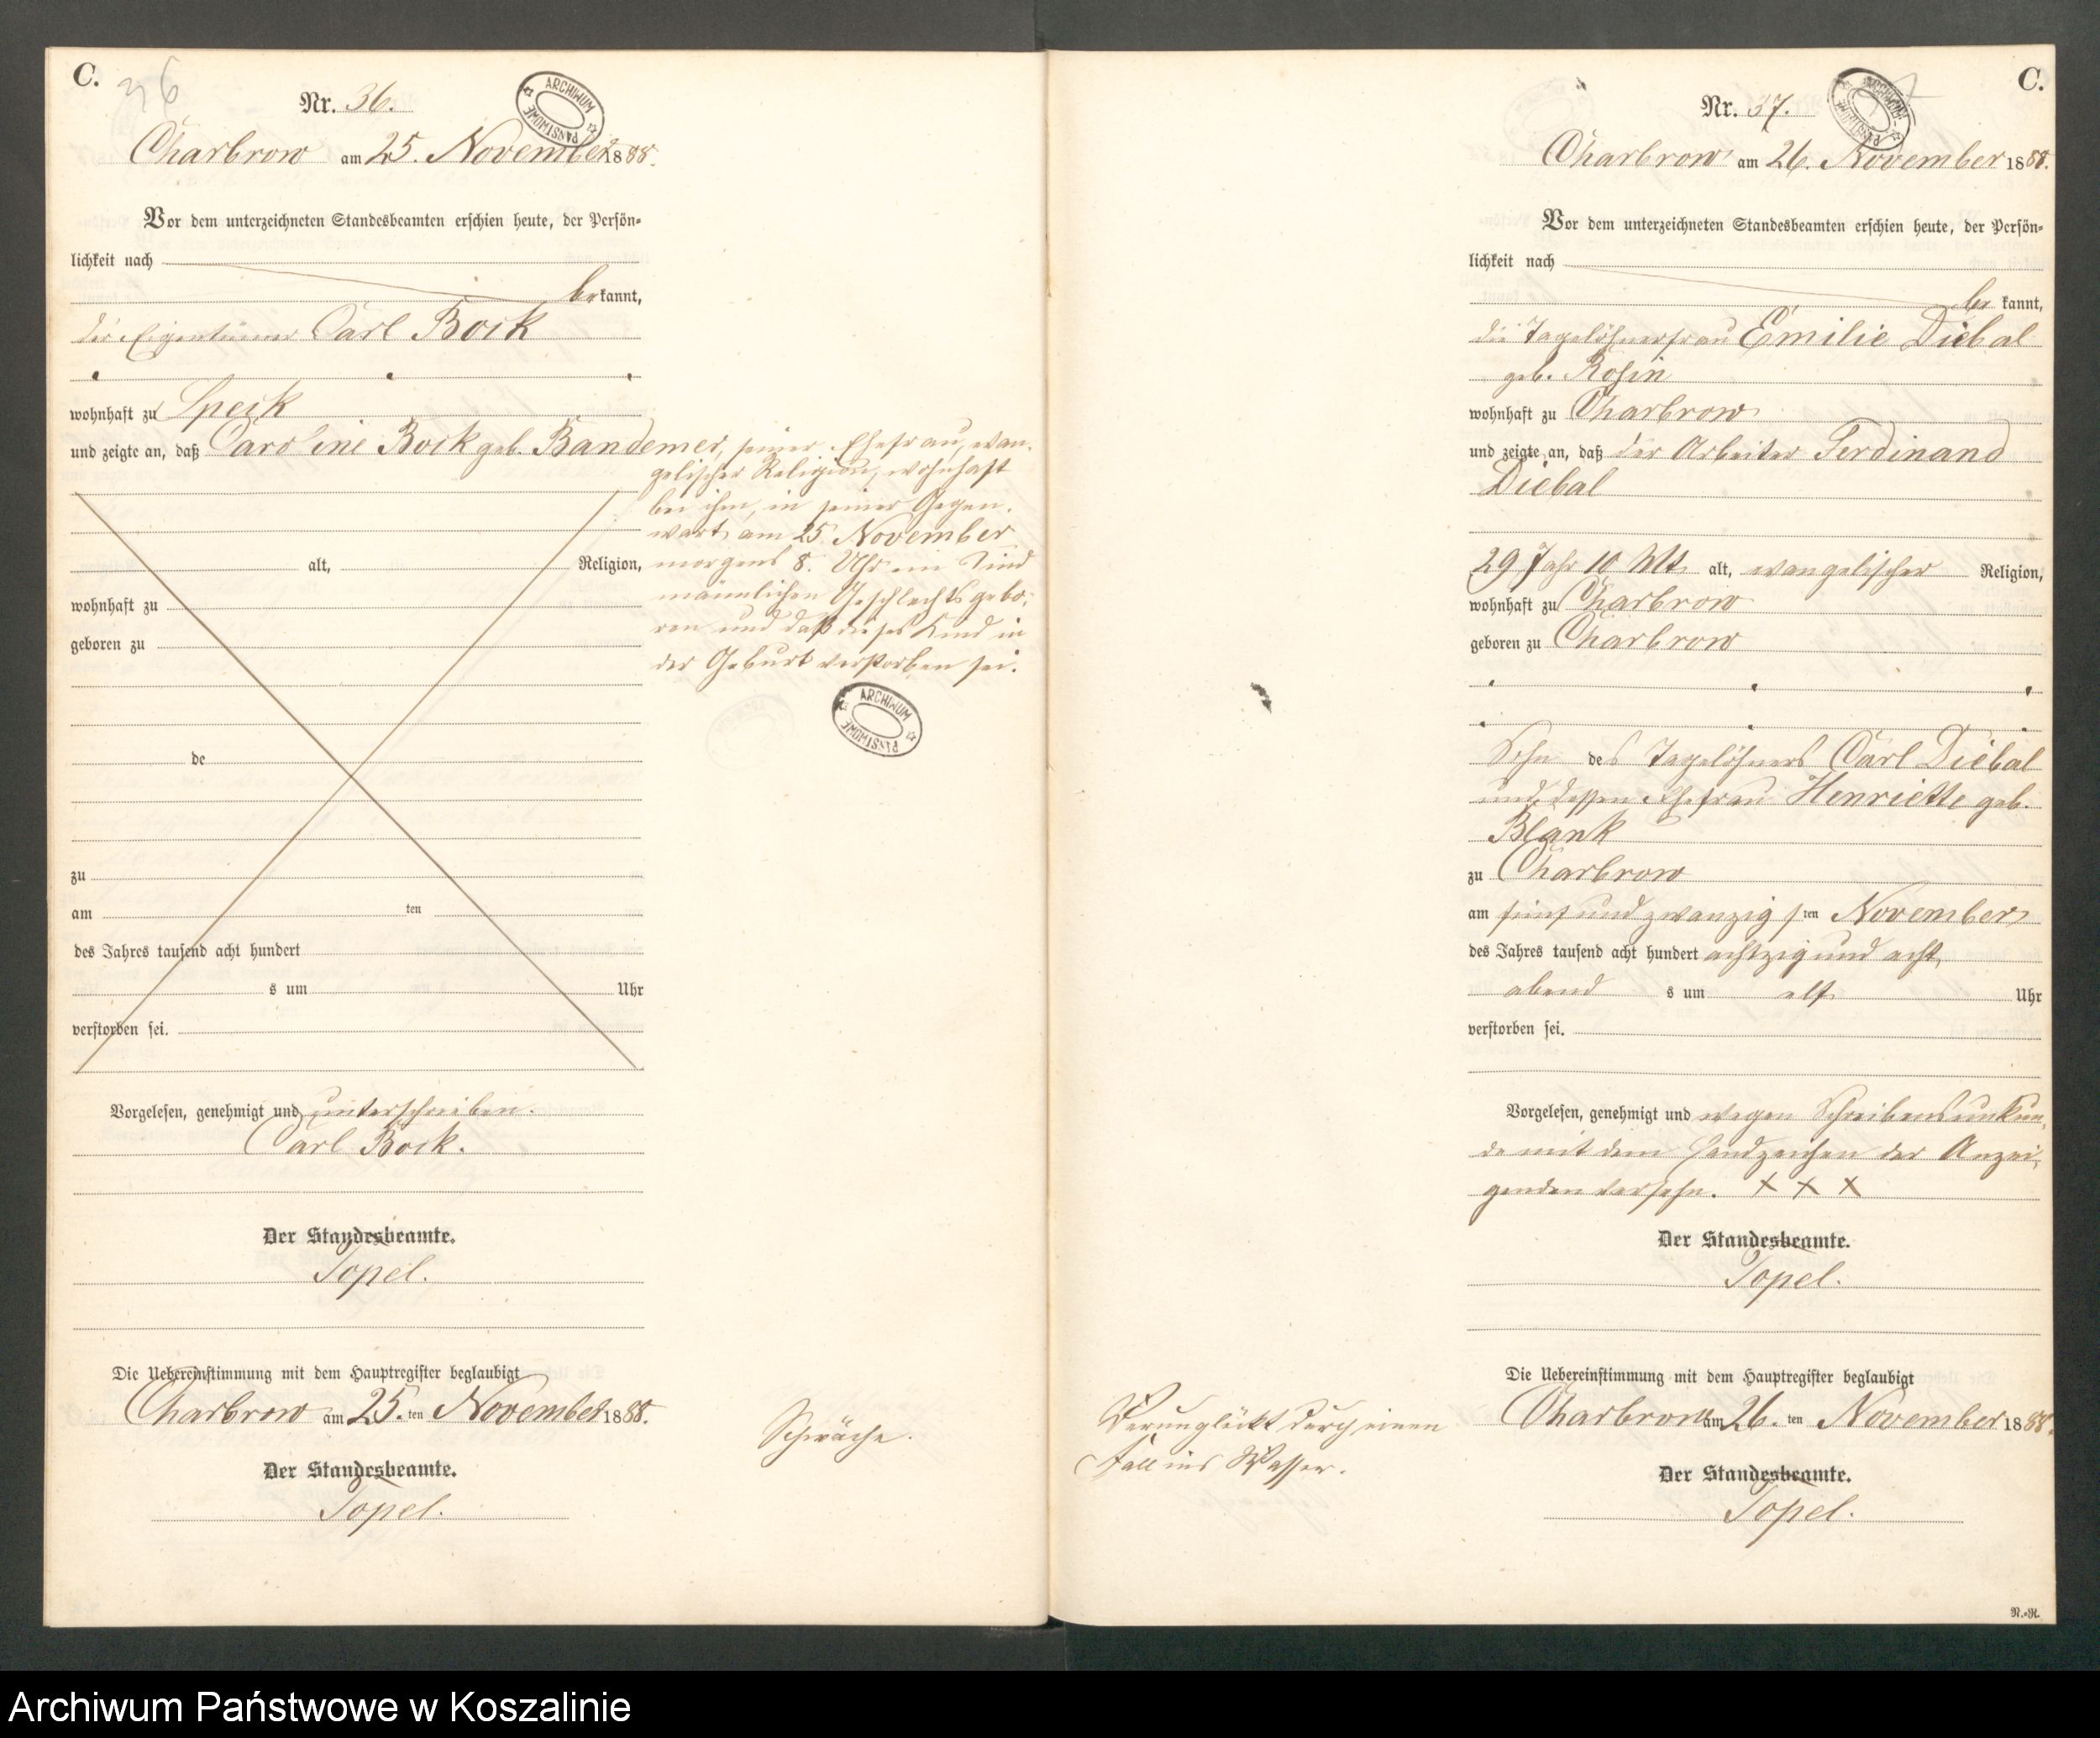 C.
36
Nr. 36.
ARCHIWUM PAŃSTWOWE
Charbrow am 25. November 1888.
Vor dem unterzeichneten Standesbeamten erschien heute, der Persön-
lichkeit nach
be kannt,
der Eigentümer Carl Bock
wohnhaft zu Speck
und zeigte an, daß Caroline Bock geb. Bandemer, seiner Ehefrau, evan-
gelischer Religion, wohnhaft
bei ihm, in seiner Gegen-
wart, am 25. November
alt, Religion, morgens 8. Uhr ein Kind
männlichen Geschlechts gebo-
wohnhaft zu
ren und daß dieses Kind in
geboren zu
der Geburt verstorben sei.
ARCHIWUM PAŃSTWOWE
de
zu
am ten
des Jahres tausend acht hundert
s um Uhr
verstorben sei.
Vorgelesen, genehmigt und unterschrieben.
Carl Bock.
Der Standesbeamte.
Topel.
Die Uebereinstimmung mit dem Hauptregister beglaubigt
Charbrow am 25. ten November 1888.
Schwäche.
Der Standesbeamte.
Topel.
C.
Nr. 37.
ARCHIWUM PAŃSTWOWE
Charbrow am 26. November 1888.
Vor dem unterzeichneten Standesbeamten erschien heute, der Persön-
lichkeit nach
be kannt,
die Tagelöhnerfrau Emilie Diebal
geb. Rosin
wohnhaft zu Charbrow
und zeigte an, daß der Arbeiter Ferdinand
Diebal
29 Jahr 10 Mt. alt, evangelischer Religion,
wohnhaft zu Charbrow
geboren zu Charbrow
Sohn des Tagelöhners Carl Diebal
und dessen Ehefrau Henriette geb.
Blank
zu Charbrow
am fünf und zwanzigsten November
des Jahres tausend acht hundert achtzig und acht,
abend s um elf Uhr
verstorben sei.
Vorgelesen, genehmigt und wegen Schreibensunkun-
de mit dem Handzeichen der Anzei-
genden versehn. X X X
Der Standesbeamte.
Topel.
Die Uebereinstimmung mit dem Hauptregister beglaubigt
Charbrow am 26. ten November 1888.
Verunglückt durch einen
Fall ins Wasser.
Der Standesbeamte.
Topel.
N.-N.
Archiwum Państwowe w Koszalinie